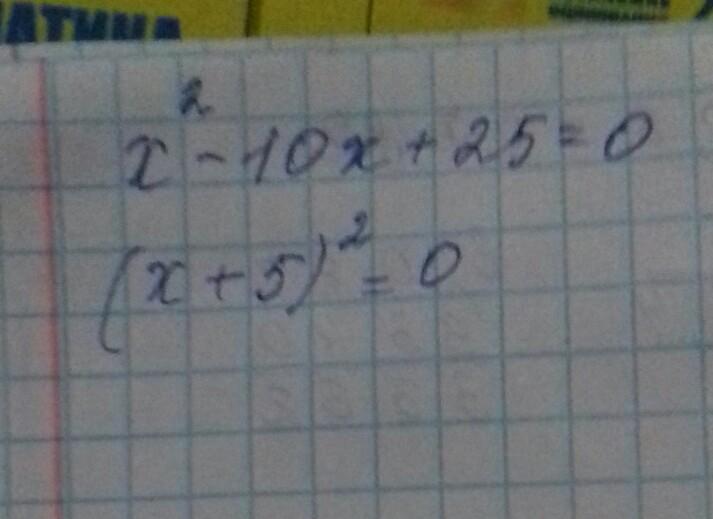 АТИНА
x² - 10x + 25 = 0
(x + 5)² = 0